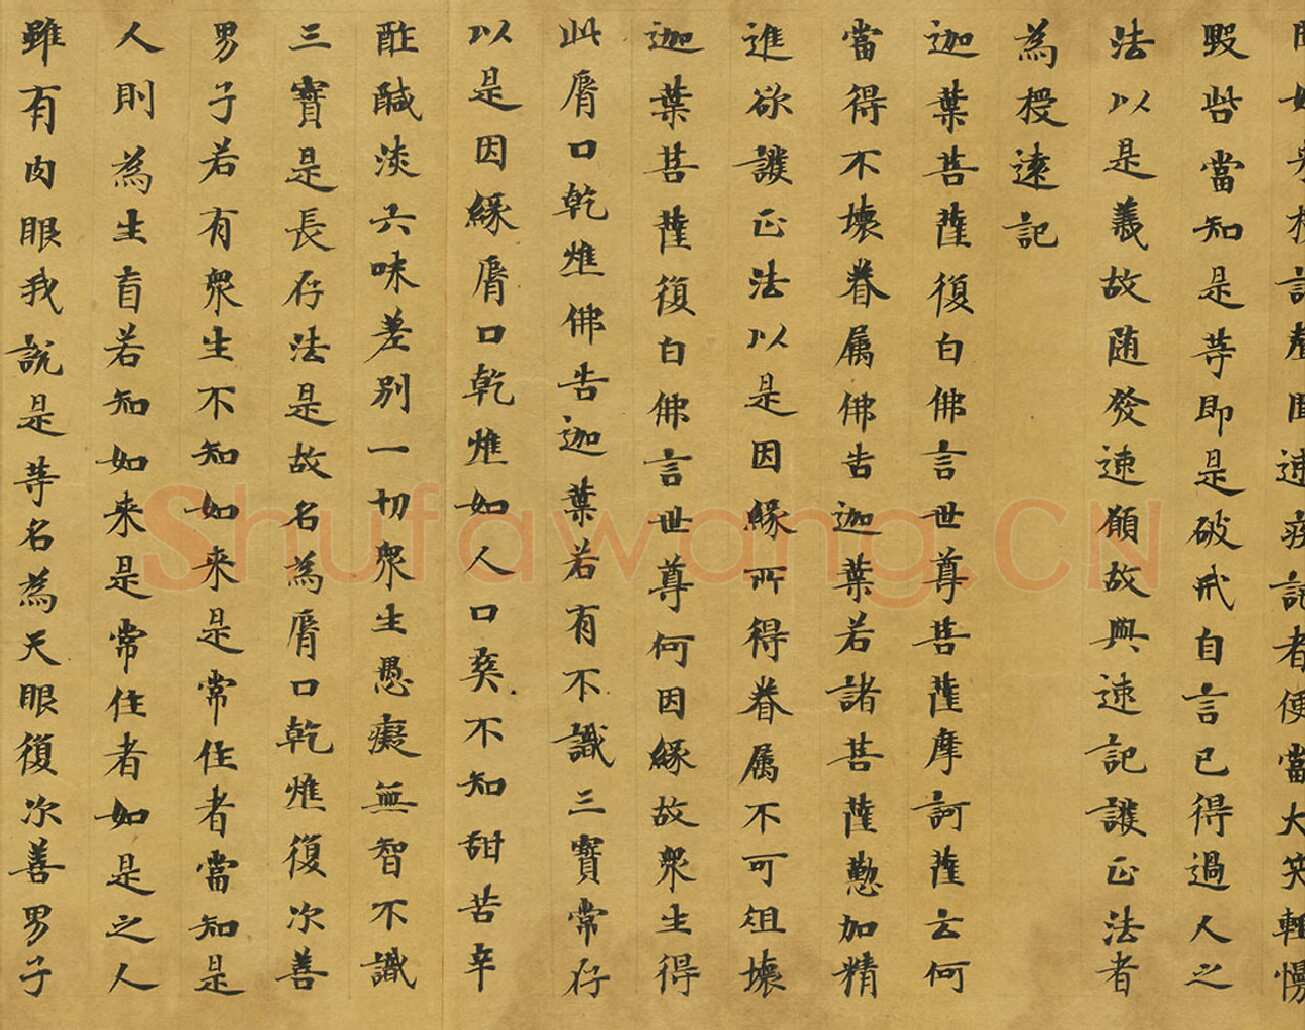 記聲聞速疾記者便當大笑輕慢
毀呰當知是等即是破戒自言已得過人之
法以是義故随發速願故與速記護正法者
為授遠記
迦葉菩薩復白佛言世尊菩薩摩訶薩云何
當得不壞眷属佛告迦葉若諸菩薩懃加精
進欲護正法以是因緣所得眷属不可俎壞
迦葉菩薩復白佛言世尊何因緣故衆生得
此脣口乾燋佛告迦葉若有不識三寶常存
以是因緣脣口乾燋如人口爽不知甜苦辛
酢鹹淡六味差别一切衆生愚癡無智不識
三寶是長存法是故名為脣口乾燋復次善
男子若有衆生不知如来是常住者當知是
人則為生盲若知如来是常住者如是之人
雖有肉眼我說是等名為天眼復次善男子
Shufawang.CN